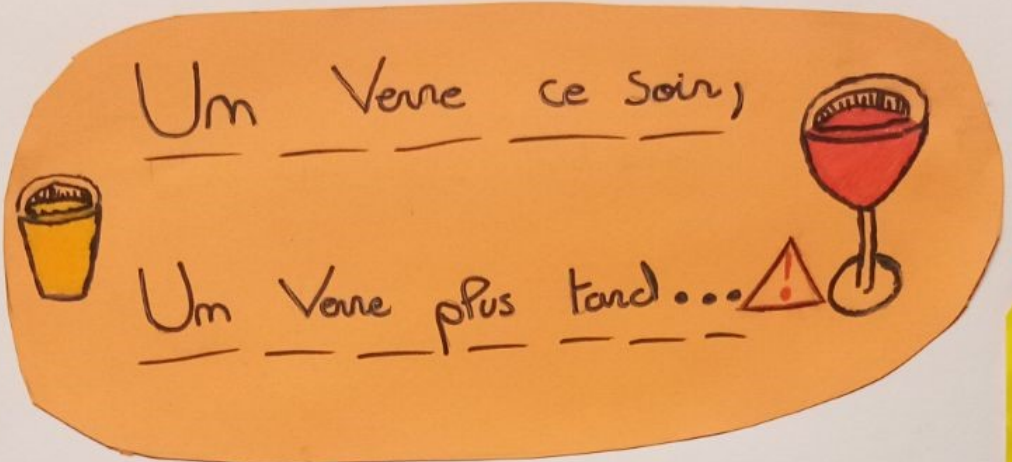 Un Verre ce soir,
Un Verre plus tard...
!